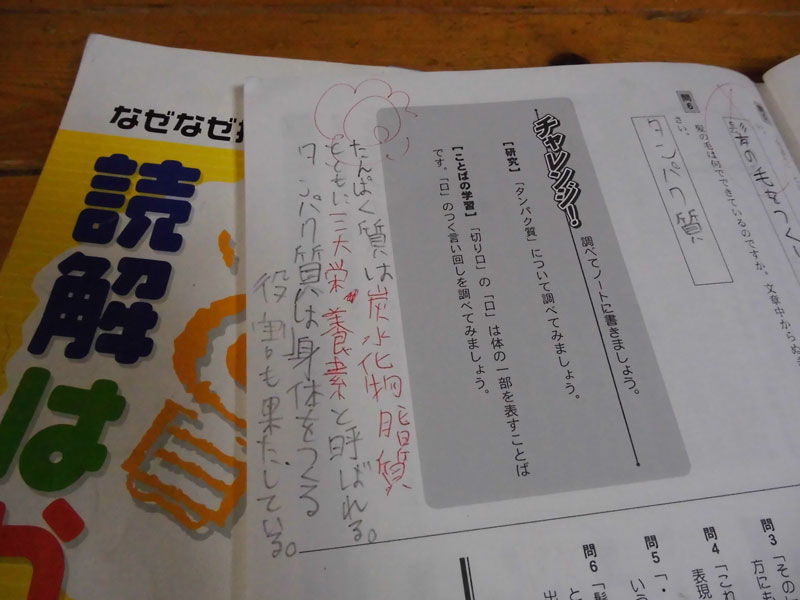 なぜなぜ
読解は
問6
髪の毛は何でできているのですか。文章中からぬ
さい。
タンパク質
チャレンジ！
調べてノートに書きましょう。
【研究】「タンパク質」について調べてみましょう。
【ことばの学習】「切り口」の「口」は体の一部を表すことば
です。「口」のつく言い回しを調べてみましょう。
たんぱく質は炭水化物脂質
ともに三大栄養素と呼ばれる。
タンパク質は身体をつくる
役割も果たしている。
問3「その
方にも
問4「これ
表現
問5「・
いう
問6「髪
と
出